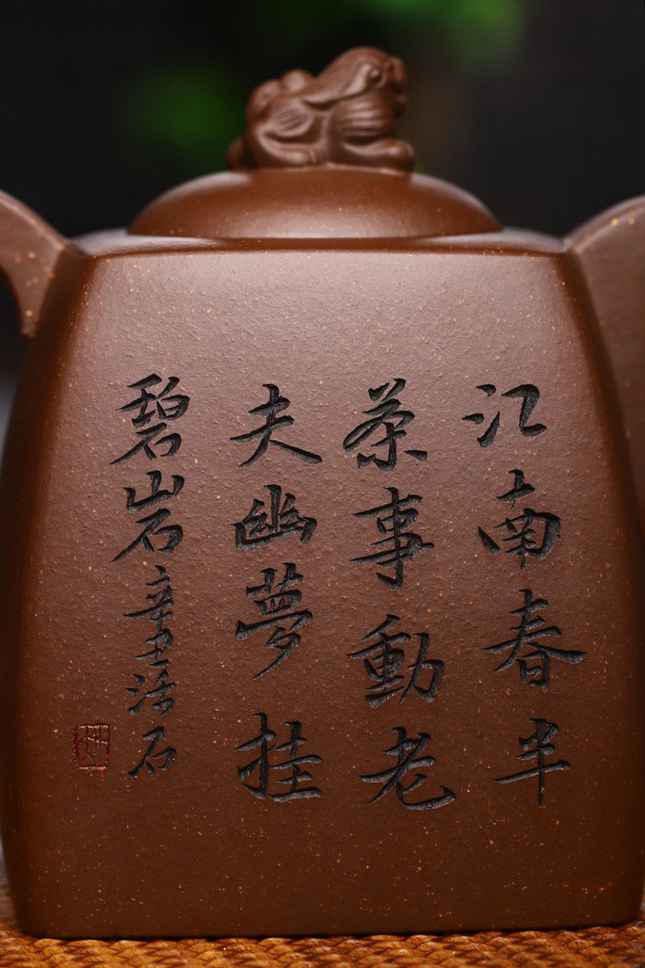 江南春半
茶事動老
夫幽夢挂
碧山岩辛丑
石